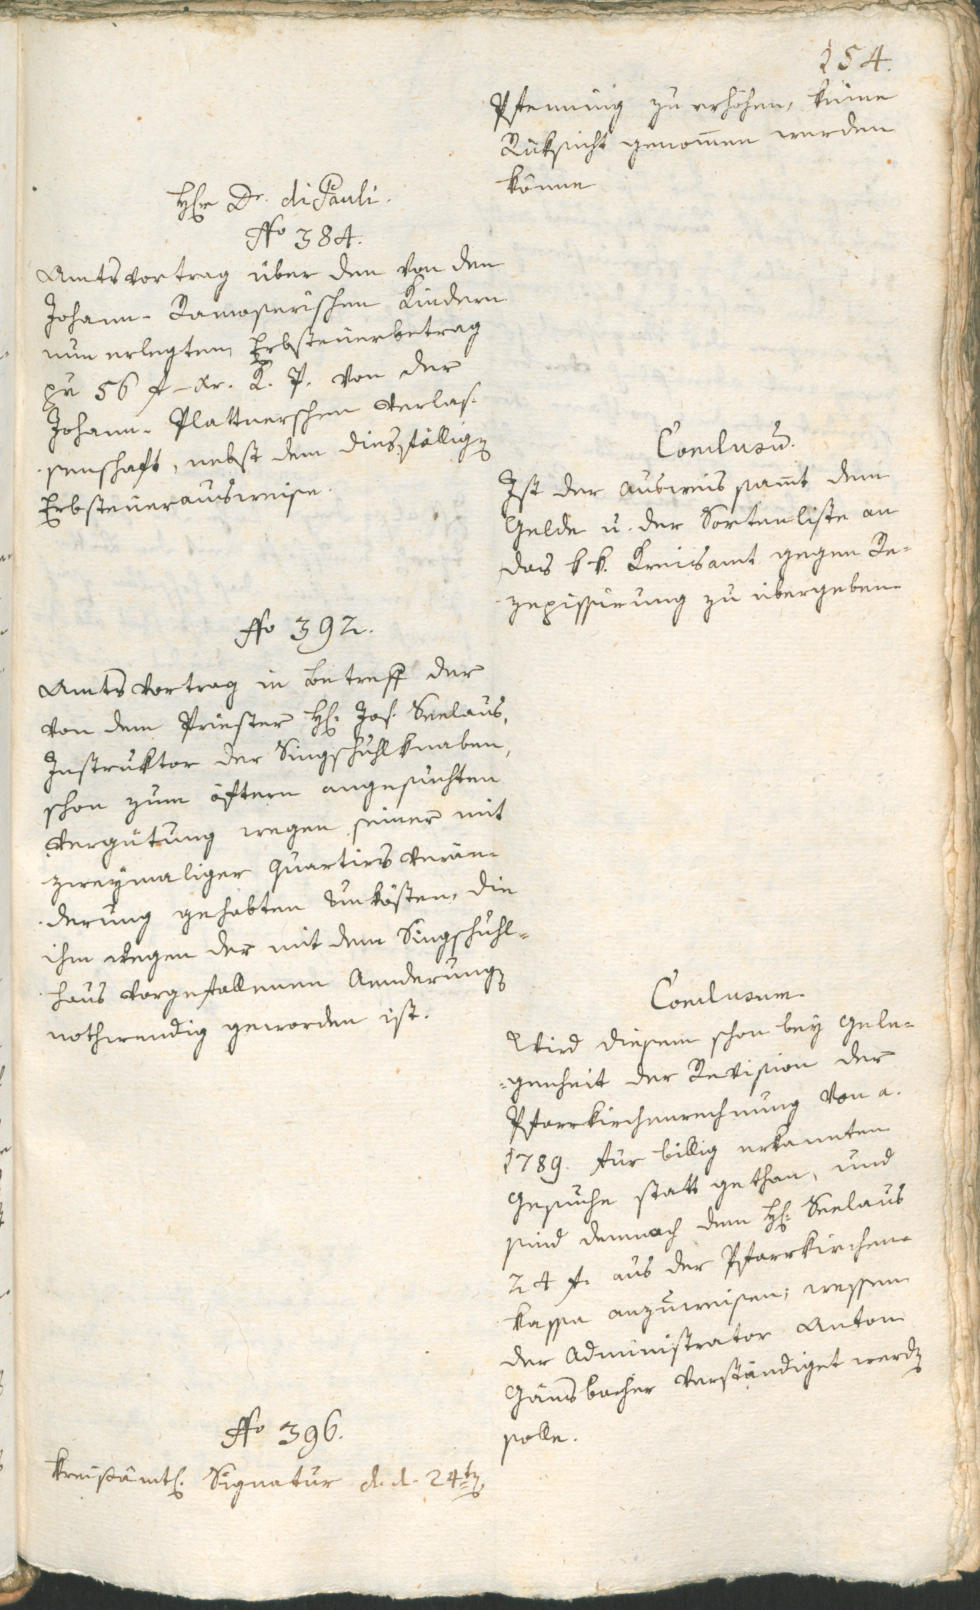 254.
Pfenning zu erhöhen, keine
Rüksicht genom̄en werden
könne
H̄. Dr. di Pauli.
No 384.
Amtsvortrag über den von den
Johann-Ramoserischen Kindern
nun erlegten Erbsteuerbetrag
pr 56 f – Kr. K. P. von der
Johann-Plattnerschen Verlas-
senschaft, nebst dem diesfällig
Erbsteuerausweise.
Conclusū.
Ist der Ausweis sam̄t dem
Gelde u. der Sortenliste an
das k k. Kreisamt gegen Re-
zepissirung zu übergeben.
No 392.
Amtsvortrag in Betreff der
von dem Priester H: Jos. Seelaus,
Instruktor der Singschuhlknaben,
schon zum öftern angesuchten
Vergütung wegen seiner mit
zweymaliger Quartirs Verän-
derung gehabten Unkösten, die
ihm wegen der mit dem Singschuhl-
haus vorgefallenen Aenderung
nothwendig geworden ist.
Conclusum.
Wird diesem schon bey Gele-
genheit der Revision der
Pfarrkirchenrechnung von a.
1789. für billig erkannten
Gesuche statt gethan, und
sind demnach dem H: Seelaus
24 f. aus der Pfarrkirchen-
kassa anzuweisen; wessen
der Administrator Anton
Gänsbacher verständiget werd
solle.
No 396.
Kreisämtl. Signatur d. d. 24t